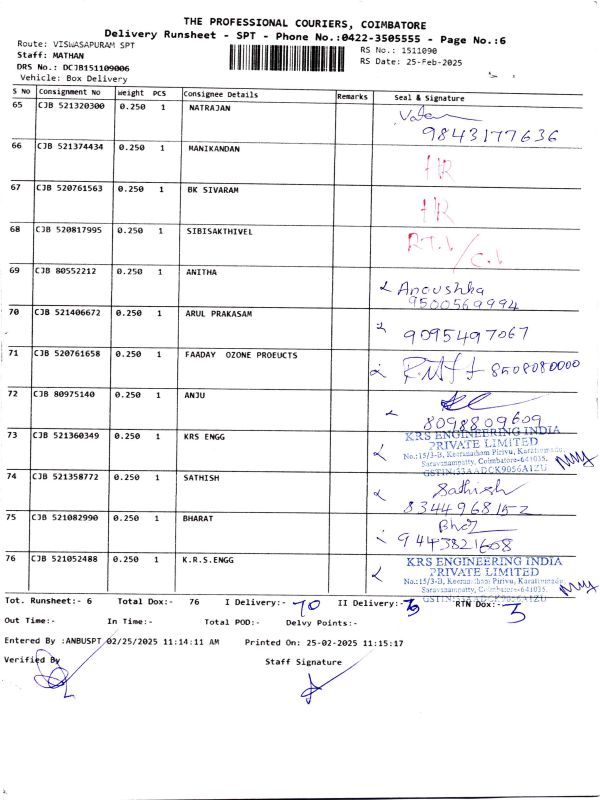 THE PROFESSIONAL COURIERS, COIMBATORE
Delivery Runsheet - SPT - Phone No.:0422-3505555 - Page No.:6
Route: VISWASAPURAM SPT RS No.: 1511090
Staff: MATHAN RS Date: 25-Feb-2025
DRS No.: DCJB151109006
Vehicle: Box Delivery
S No Consignment No Weight PCS Consignee Details Remarks Seal & Signature
65 CJB 521320300 0.250 1 NATRAJAN
9843177636
66 CJB 521374434 0.250 1 MANIKANDAN
67 CJB 520761563 0.250 1 BK SIVARAM
68 CJB 520817995 0.250 1 SIBISAKTHIVEL
69 CJB 80552212 0.250 1 ANITHA Anoushka
9500569994
70 CJB 521406672 0.250 1 ARUL PRAKASAM
9095497067
71 CJB 520761658 0.250 1 FAADAY OZONE PROEUCTS 8508080000
72 CJB 80975140 0.250 1 ANJU
8098809609
73 CJB 521360349 0.250 1 KRS ENGG KRS ENGINEERING INDIA
PRIVATE LIMITED
No.:15/3-B, Keeranatham Pirivu, Karattumedu,
Saravanampatty, Coimbatore-641035.
GSTIN:33AADCK9056A1ZU
74 CJB 521358772 0.250 1 SATHISH Sathish
8344968152
75 CJB 521082990 0.250 1 BHARAT
9443821608
76 CJB 521052488 0.250 1 K.R.S.ENGG KRS ENGINEERING INDIA
PRIVATE LIMITED
No.:15/3-B, Keeranatham Pirivu, Karattumedu,
Saravanampatty, Coimbatore-641035.
GSTIN:33AADCK9056A1ZU
Tot. Runsheet:- 6 Total Dox:- 76 I Delivery:- 70 II Delivery:- RTN Dox:- 3
Out Time:- In Time:- Total POD:- Delvy Points:-
Entered By :ANBUSPT 02/25/2025 11:14:11 AM Printed On: 25-02-2025 11:15:17
Verified By Staff Signature